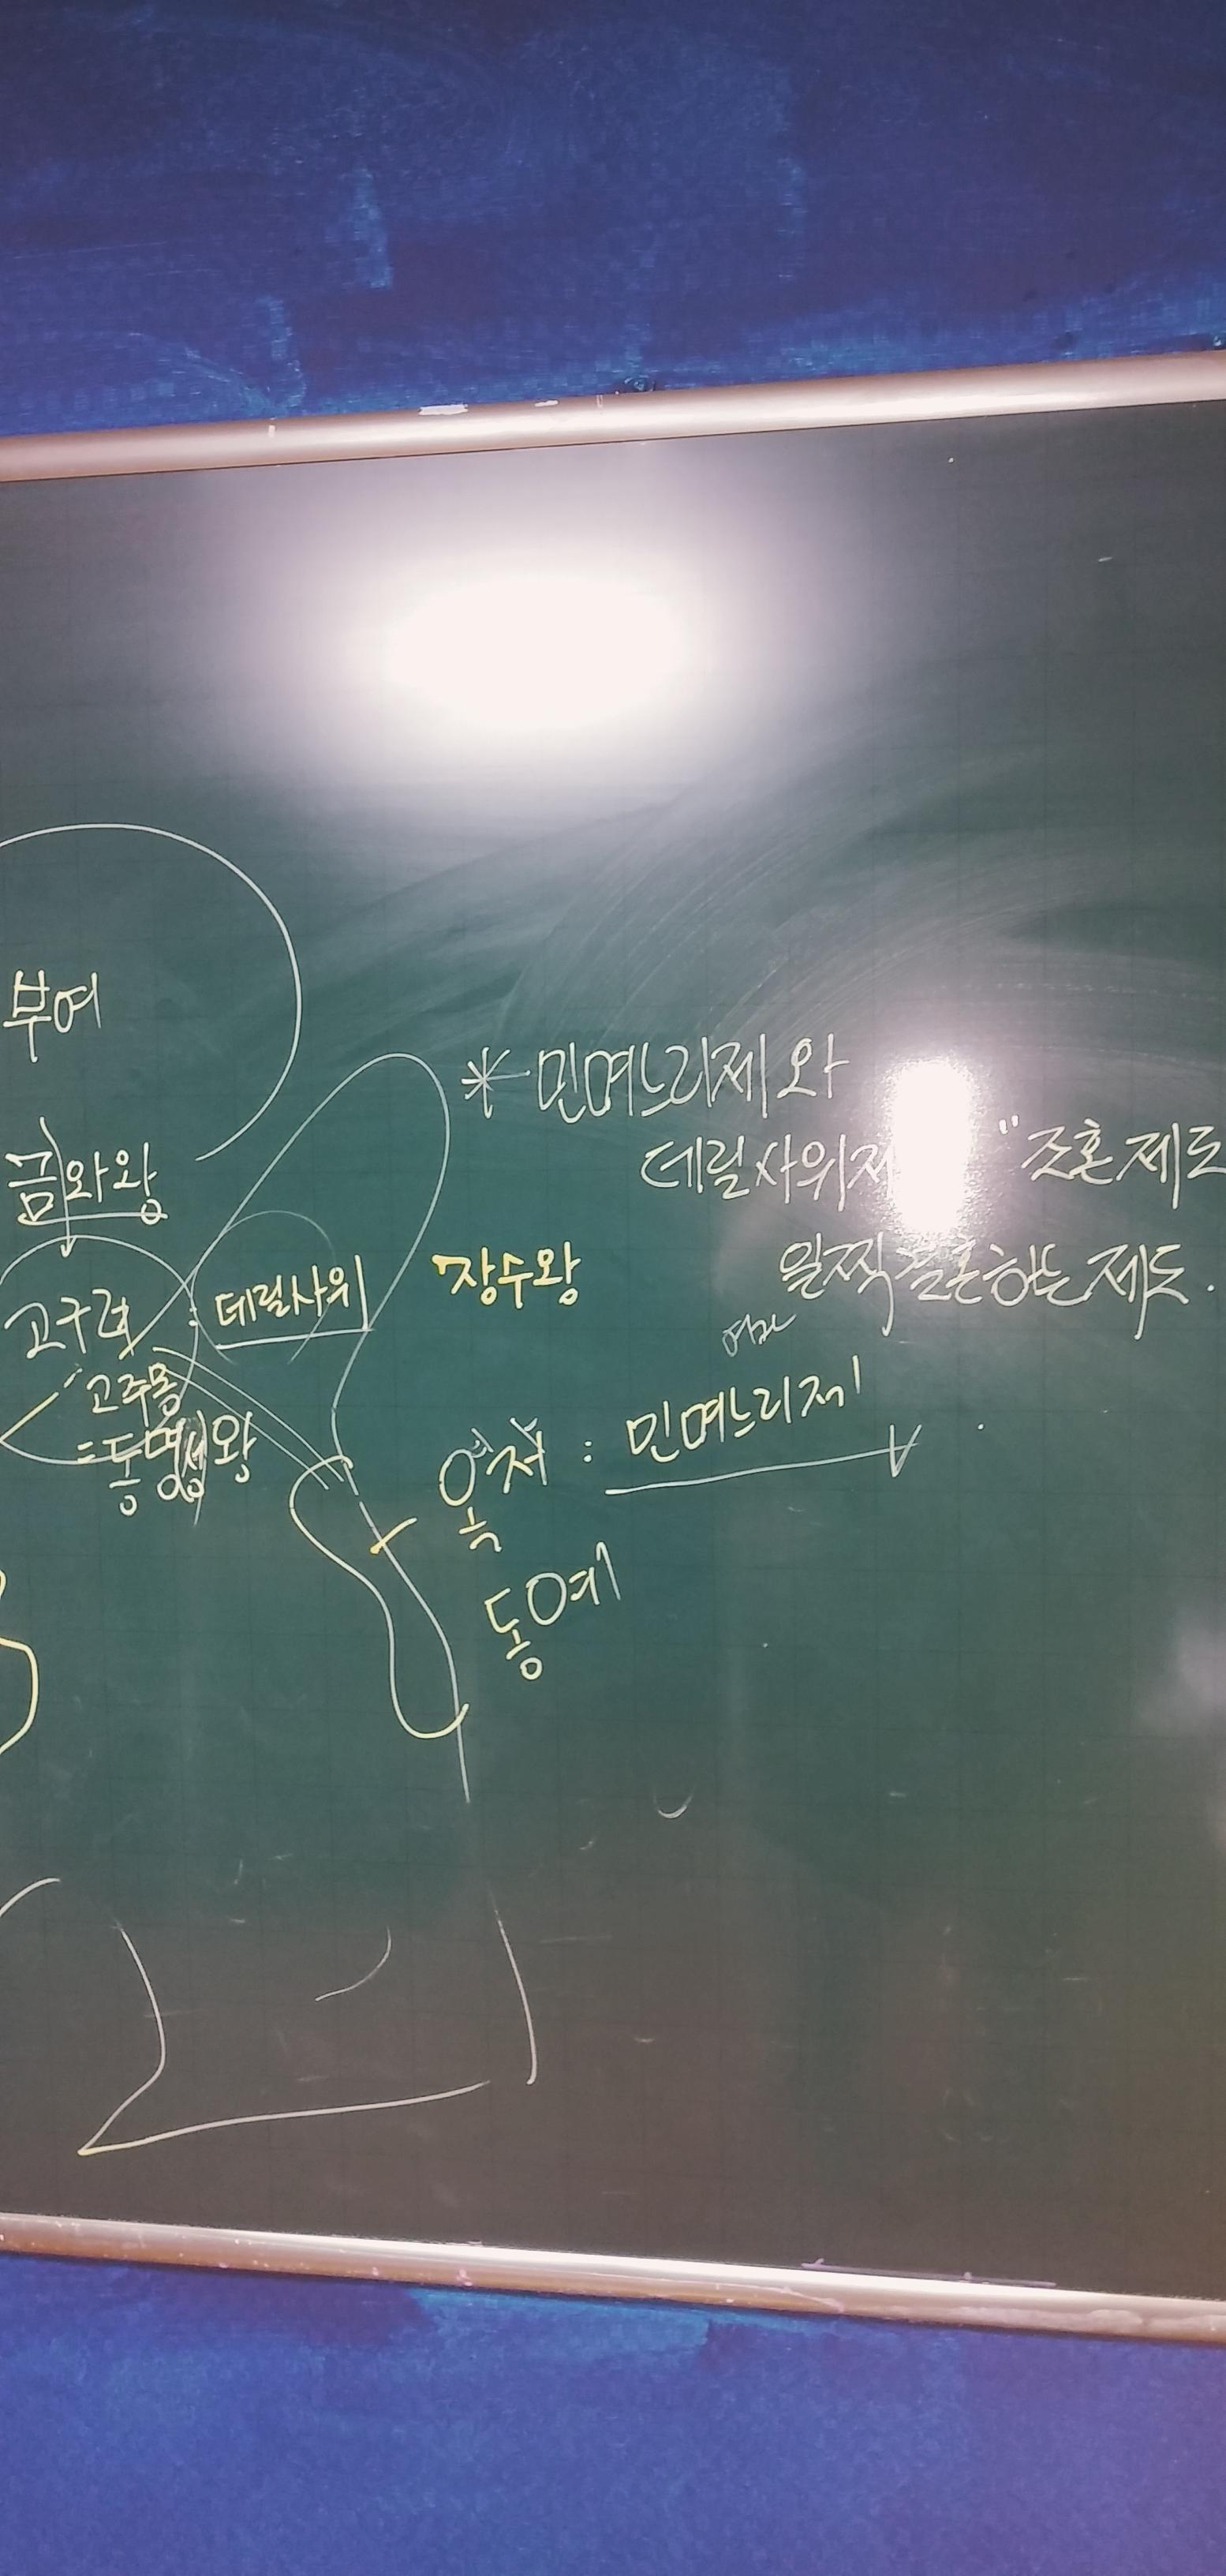 부여
금와왕
고구려
고주몽
=동명성왕
데릴사위
장수왕
* 민며느리제와
데릴사위제 "조혼제도
일찍 결혼하는 제도.
옥저 : 민며느리제
동예